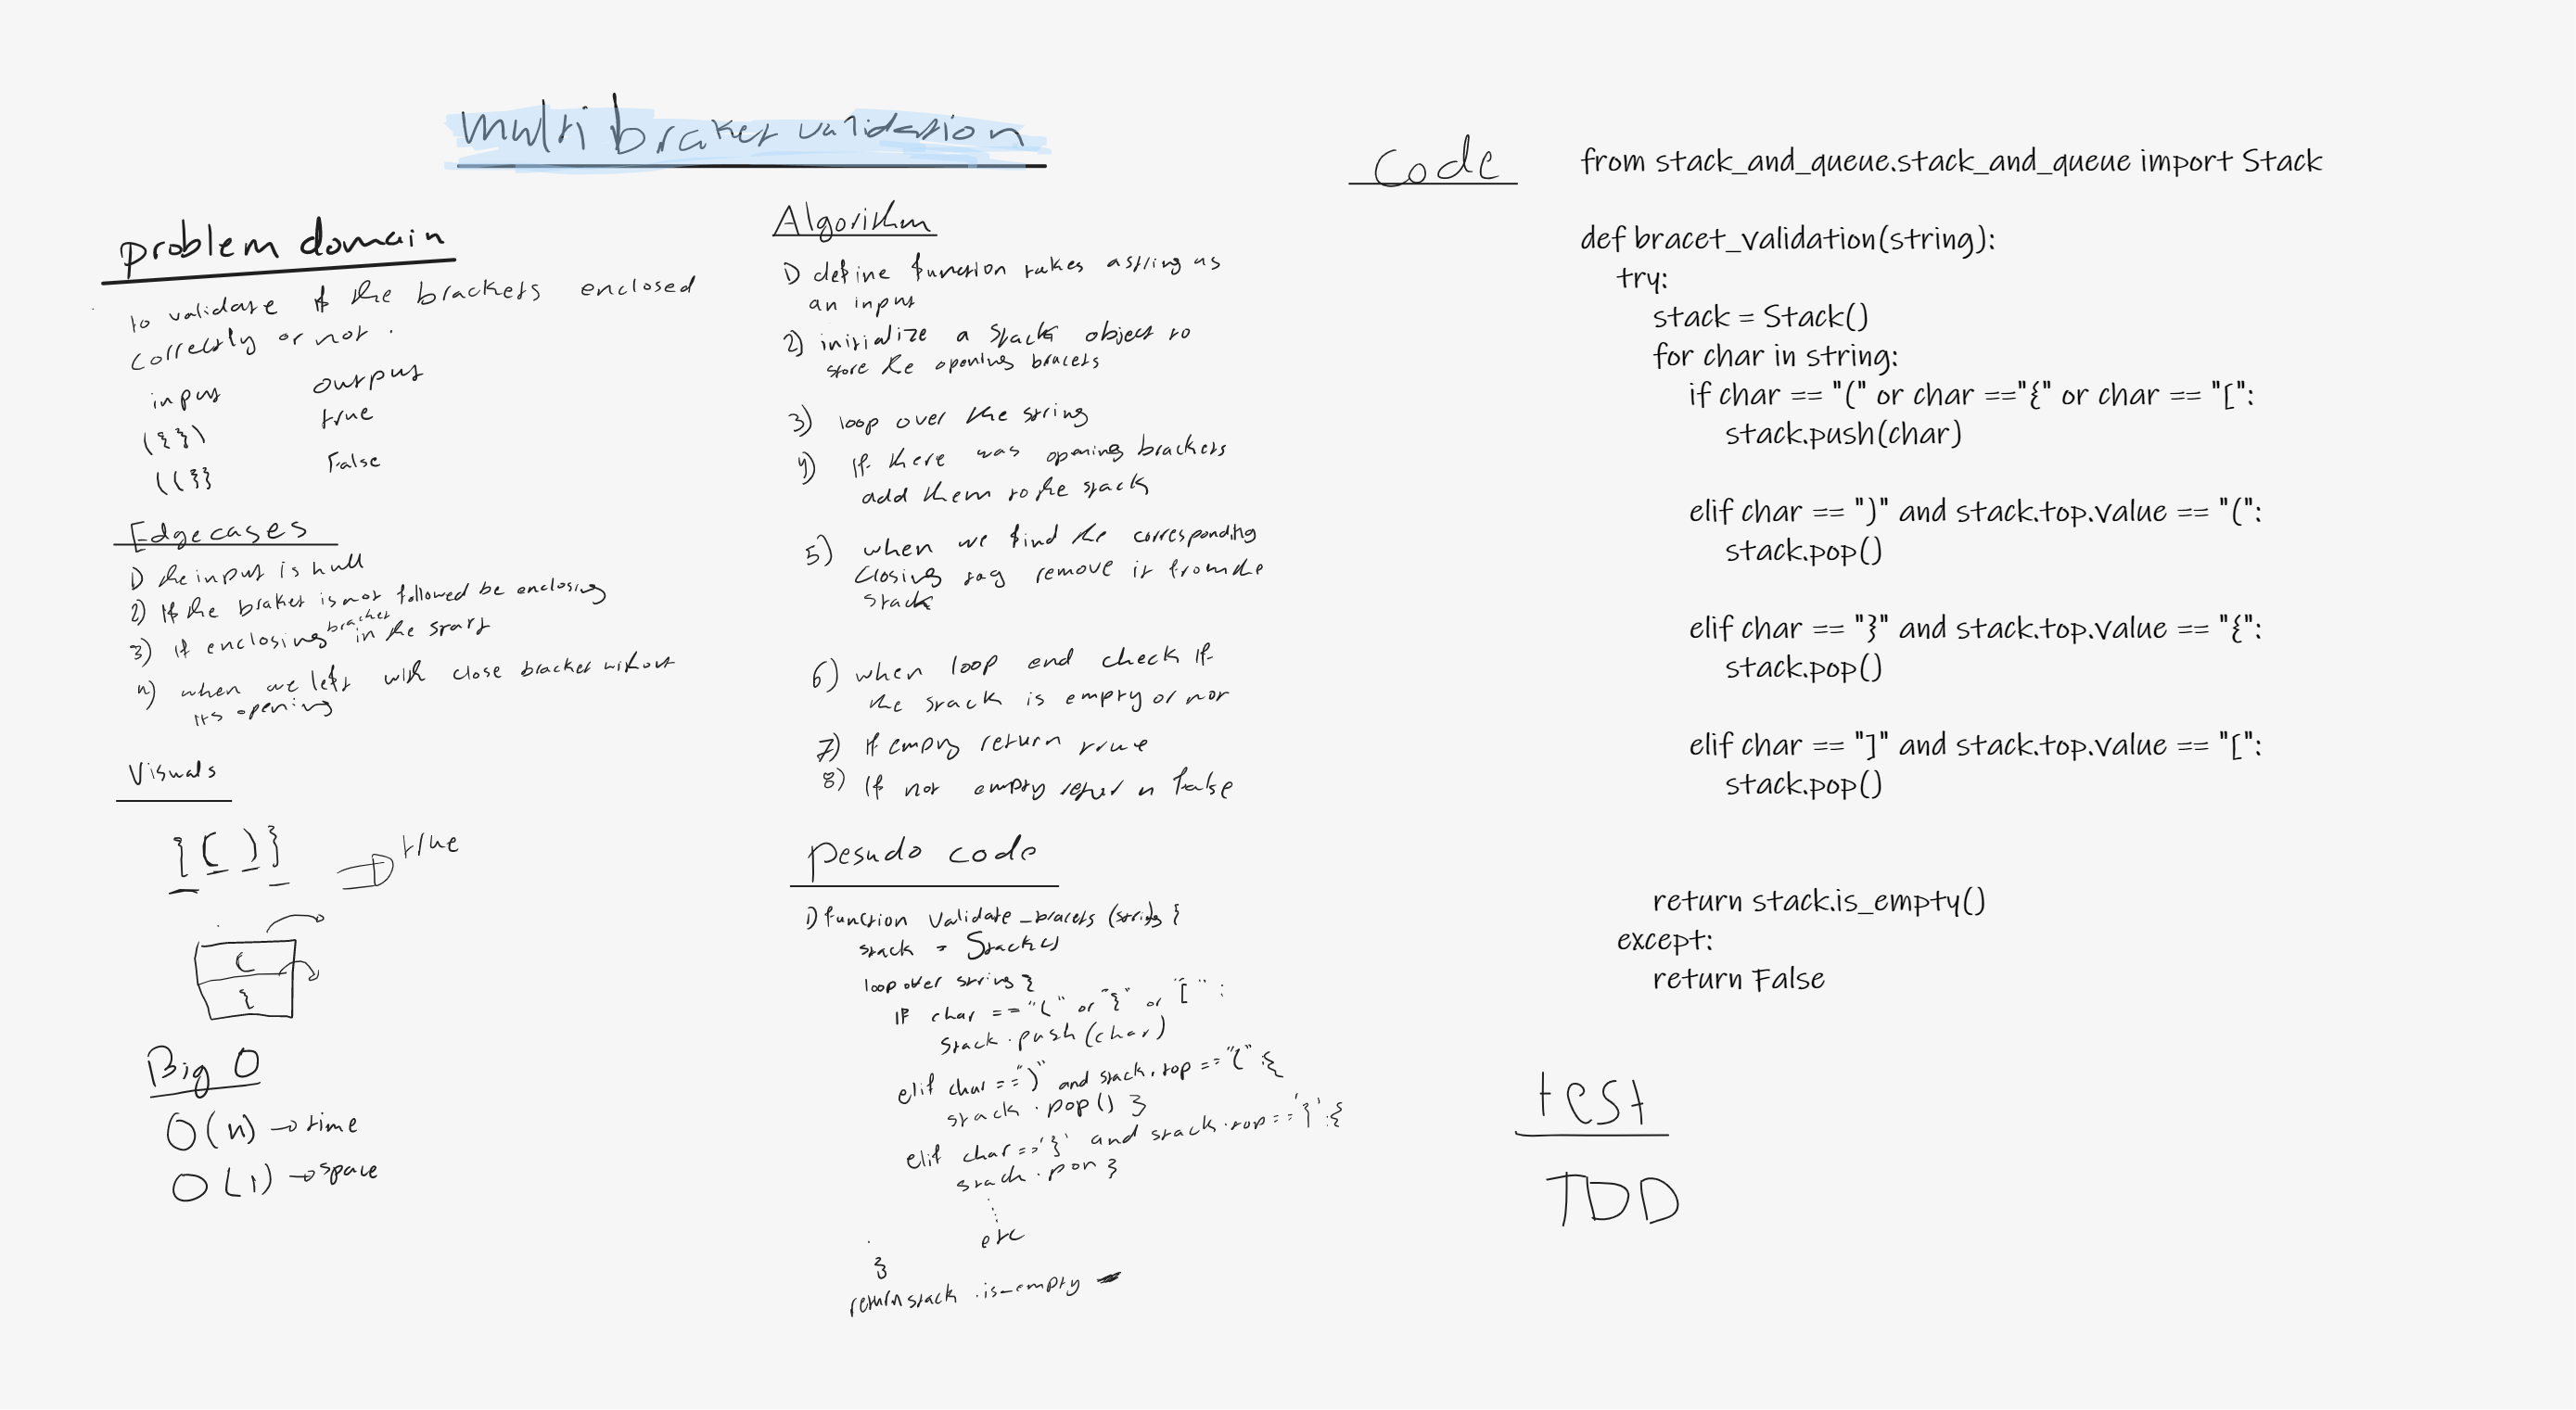 multi braket validation
problem domain
to validate if the brackets enclosed
correctly or not .
input output
({}) true
((}} False
Edgecases
1) the input is null
2) If the braket is not followed be enclosing
3) if enclosing bracket in the start
4) when we left with close bracket without
its opening
Visuals
{()} true
(
{
Big O
O(n) → time
O(1) → space
Algorithm
1) define function takes a string as
an input
2) initialize a Stack object to
store the opening bracets
3) loop over the string
4) If there was opening brackets
add them to the stack
5) when we find the corresponding
closing tag remove it from the
stack
6) when loop end check if
the stack is empty or not
7) If empty return true
8) If not empty return False
pesudo code
1) function validate_bracets (string {
stack = Stack()
loop over string {
If char == "(" or "{" or "[" :
Stack.push(char)
elif char == ")" and stack.top == "(" :{
stack.pop() }
elif char == '}' and stack.top == '}' :{
stack.pop }
etc
}
return stack .is_empty
Code
from stack_and_queue.stack_and_queue import Stack
def bracet_validation(string):
try:
stack = Stack()
for char in string:
if char == "(" or char =="{" or char == "[":
stack.push(char)
elif char == ")" and stack.top.value == "(":
stack.pop()
elif char == "}" and stack.top.value == "{":
stack.pop()
elif char == "]" and stack.top.value == "[":
stack.pop()
return stack.is_empty()
except:
return False
test
TDD